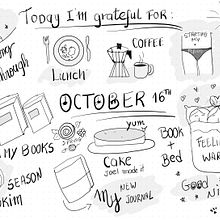 Today I'm grateful FOR:
Through
Lunch
COFFEE
STARTING
MY
OCTOBER 16TH
yum
MY BOOKS
Cake
Joel made it
Book
+
Bed
FEELING
WAR
SEASON
My NEW
JOURNAL
Good